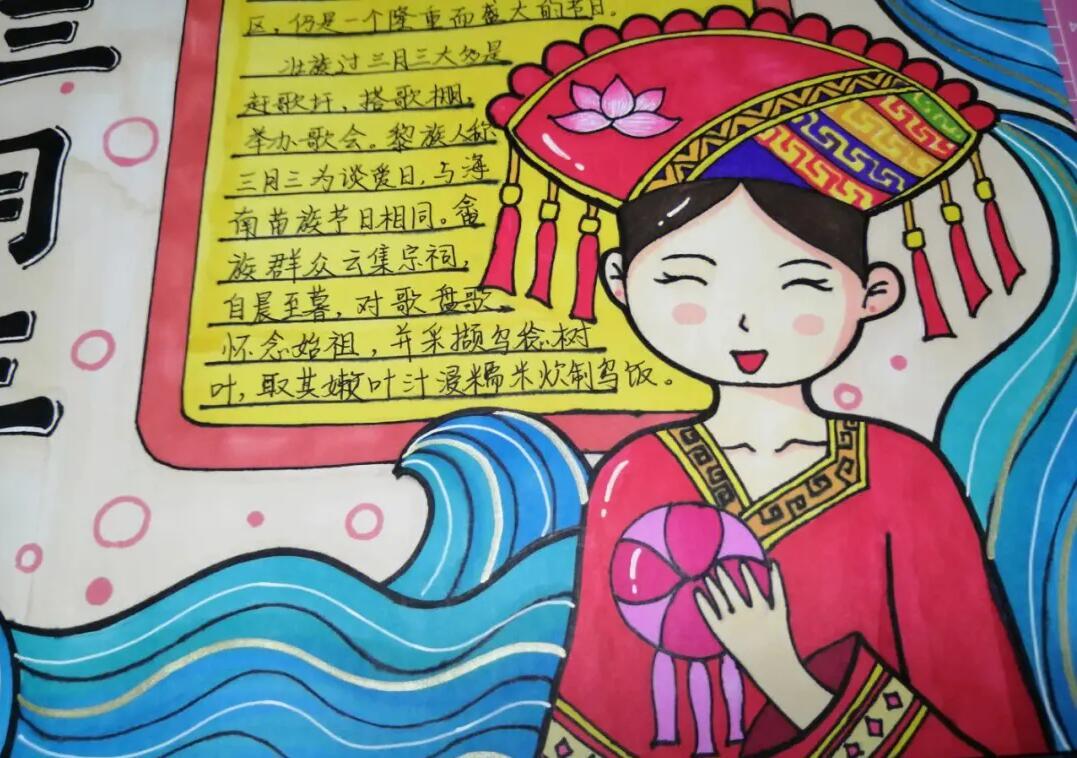 三月三
区，仍是一个隆重而盛大的节日。
壮族过三月三大多是
赶歌圩，搭歌棚，
举办歌会。黎族人称
三月三为谈爱日，与海
南苗族节日相同。畲
族群众云集宗祠，
自晨至暮，对歌盘歌
怀念始祖，并采撷乌稔树
叶，取其嫩叶汁浸糯米炊制乌饭。